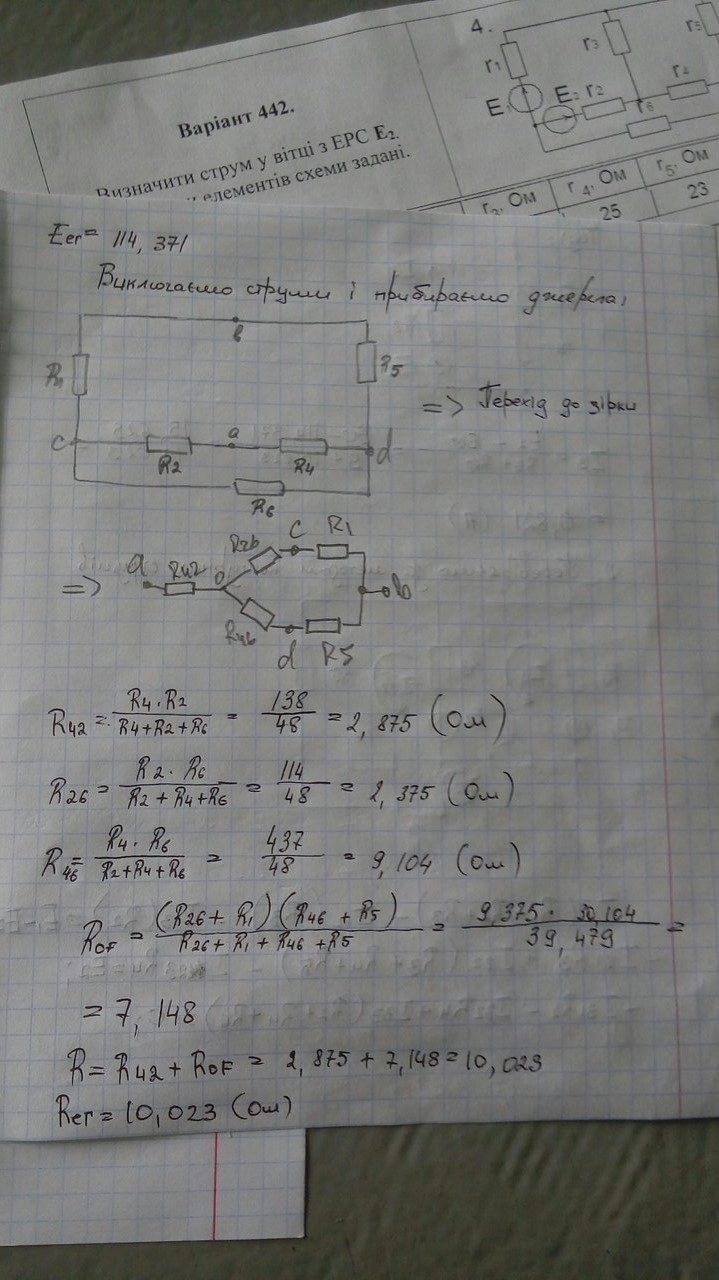 4.
r₁
r₃
r₅
E₁
E₂
r₂
r₄
r₆
Варіант 442.
Визначити струм у вітці з ЕРС E₂.
елементів схеми задані.
r₂, Ом
r₄, Ом
r₅, Ом
25
23
Eег= 114, 371
Виключаємо струми і прибираємо джерела;
b
R₁
R5
=> Перехід до зірки
c
R2
a
R4
d
R6
=>
a
R42
o
R26
c
R1
b
R46
d
R5
R42 = R4·R2 / R4+R2+R6 = 138/48 = 2, 875 (Ом)
R26 = R2·R6 / R2+R4+R6 = 114/48 = 2, 375 (Ом)
R46 = R4·R6 / R2+R4+R6 = 437/48 = 9, 104 (Ом)
ROF = (R26+R1)(R46+R5) / R26+R1+R46+R5 = 9,375 · 30,104 / 39,479 =
= 7, 148
R = R42 + ROF = 2,875 + 7,148 = 10,023
Rег = 10,023 (Ом)